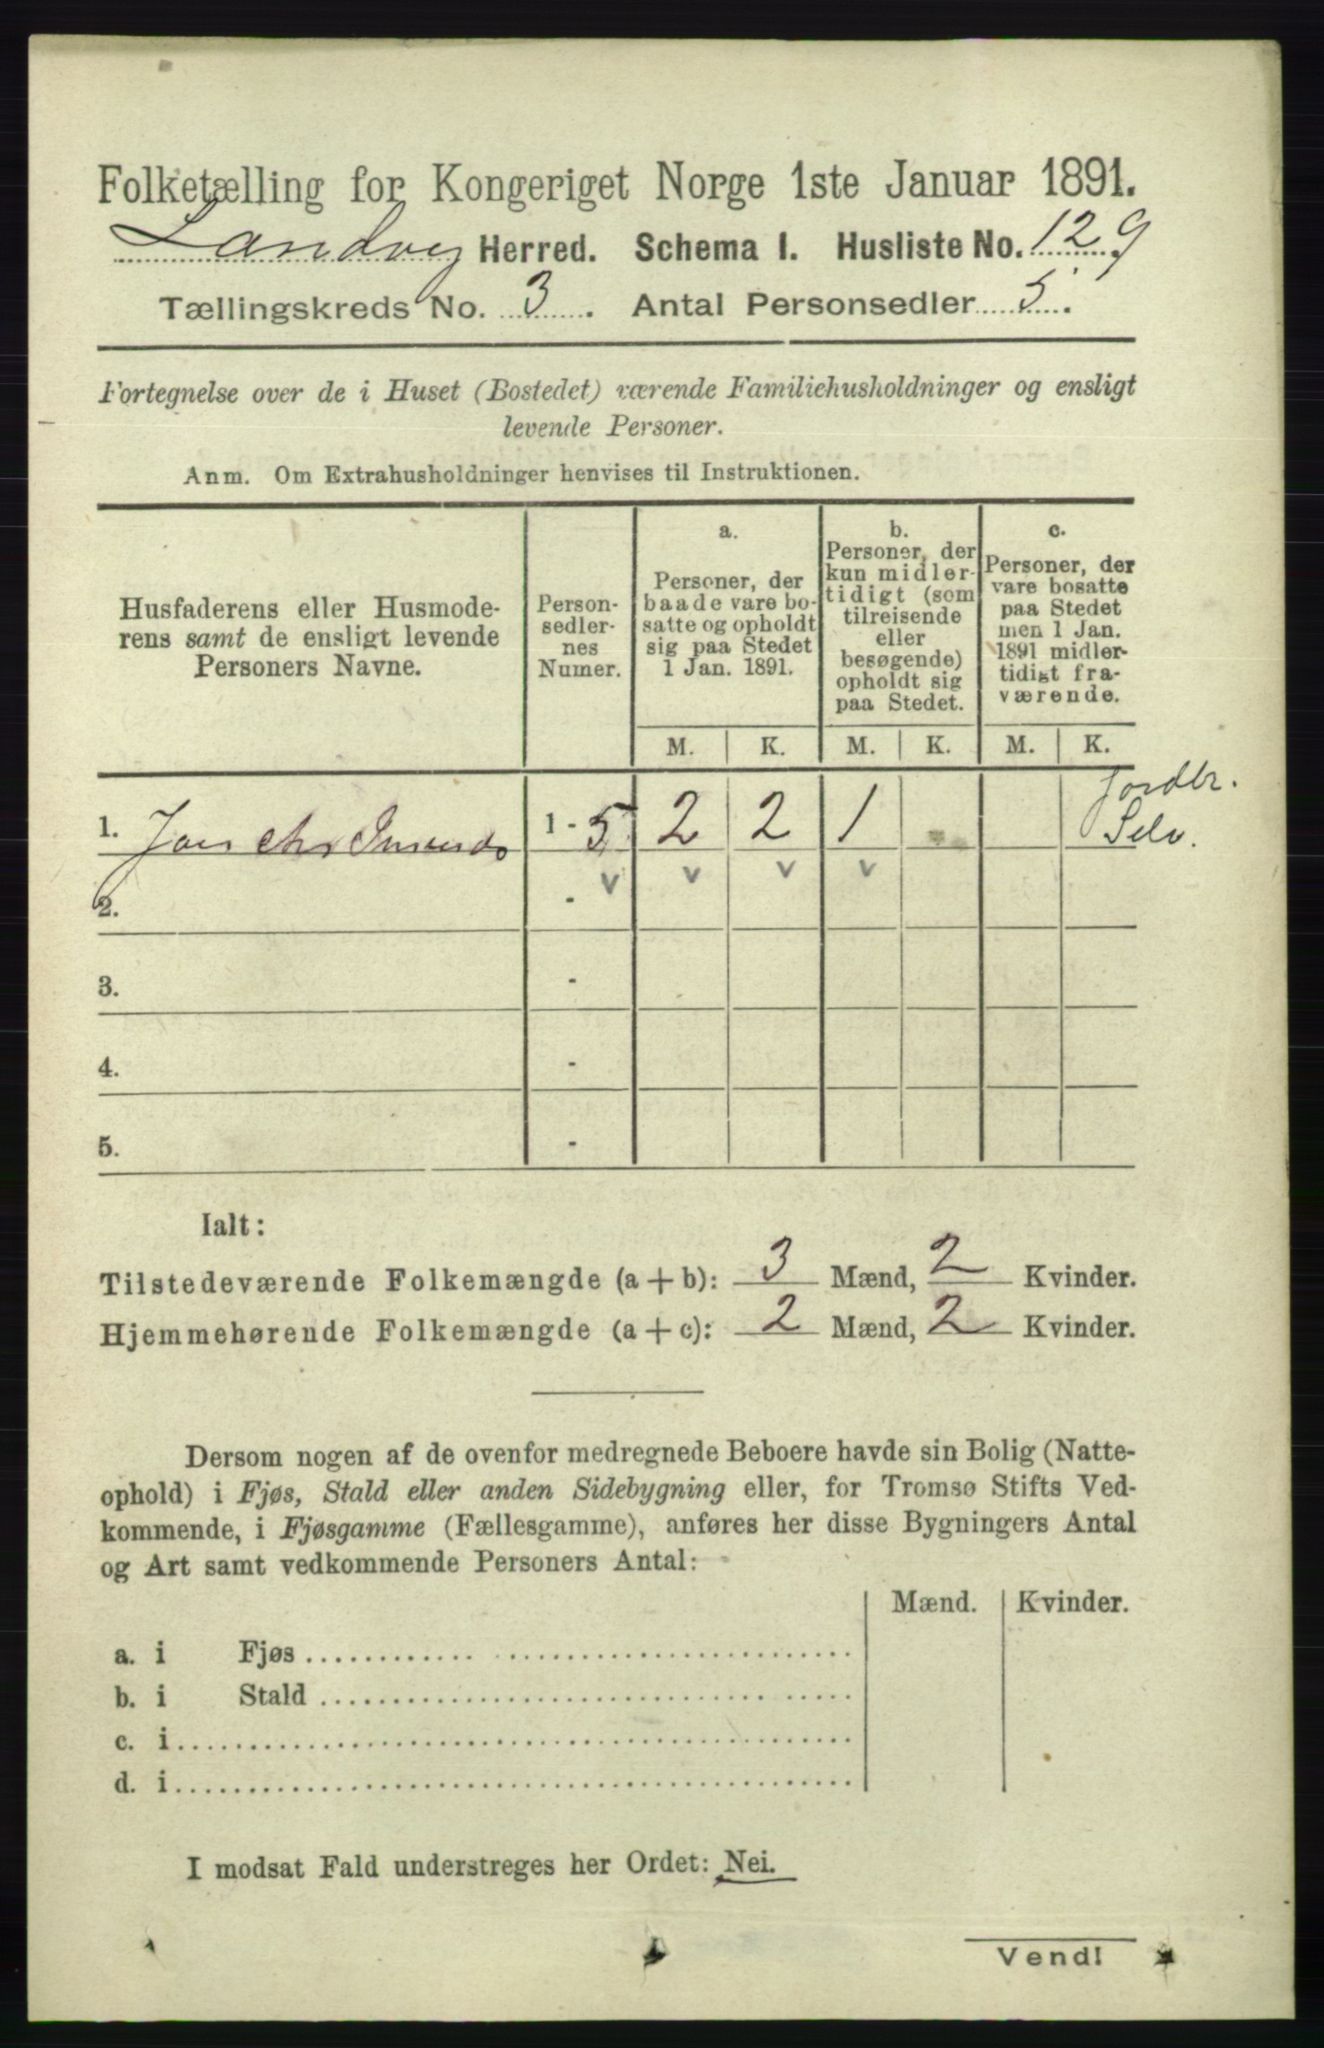 Folketælling for Kongeriget Norge 1ste Januar 1891.
Landvig Herred. Schema I. Husliste No. 129
Tællingskreds No. 3. Antal Personsedler 5.
Fortegnelse over de i Huset (Bostedet) værende Familiehusholdninger og ensligt
levende Personer.
Anm. Om Extrahusholdninger henvises til Instruktionen.
Husfaderens eller Husmode-
rens samt de ensligt levende
Personers Navne.
Person-
sedler-
nes
Numer.
a.
Personer, der
baade vare bo-
satte og opholdt
sig paa Stedet
1 Jan. 1891.
b.
Personer, der
kun midler-
tidigt (som
tilreisende
eller
besøgende)
opholdt sig
paa Stedet.
c.
Personer, der
vare bosatte
paa Stedet
men 1 Jan.
1891 midler-
tidigt fra-
værende.
M. K. M. K. M. K.
Jordbr.
1. Jens Chr 1 - 5 2 2 1 Selv.
v v v v
2. -
3. -
4. -
5. -
Ialt:
Tilstedeværende Folkemængde (a + b): 3 Mænd, 2 Kvinder.
Hjemmehørende Folkemængde (a + c): 2 Mænd, 2 Kvinder.
Dersom nogen af de ovenfor medregnede Beboere havde sin Bolig (Natte-
ophold) i Fjøs, Stald eller anden Sidebygning eller, for Tromsø Stifts Ved-
kommende, i Fjøsgamme (Fællesgamme), anføres her disse Bygningers Antal
og Art samt vedkommende Personers Antal:
Mænd. Kvinder.
a. i Fjøs
b. i Stald
c. i
d. i
I modsat Fald understreges her Ordet: Nei.
Vend!